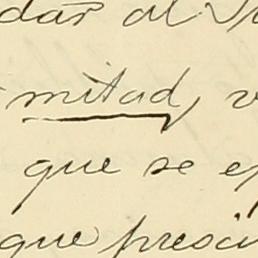 dar al
mitad, v
que se e
que preci